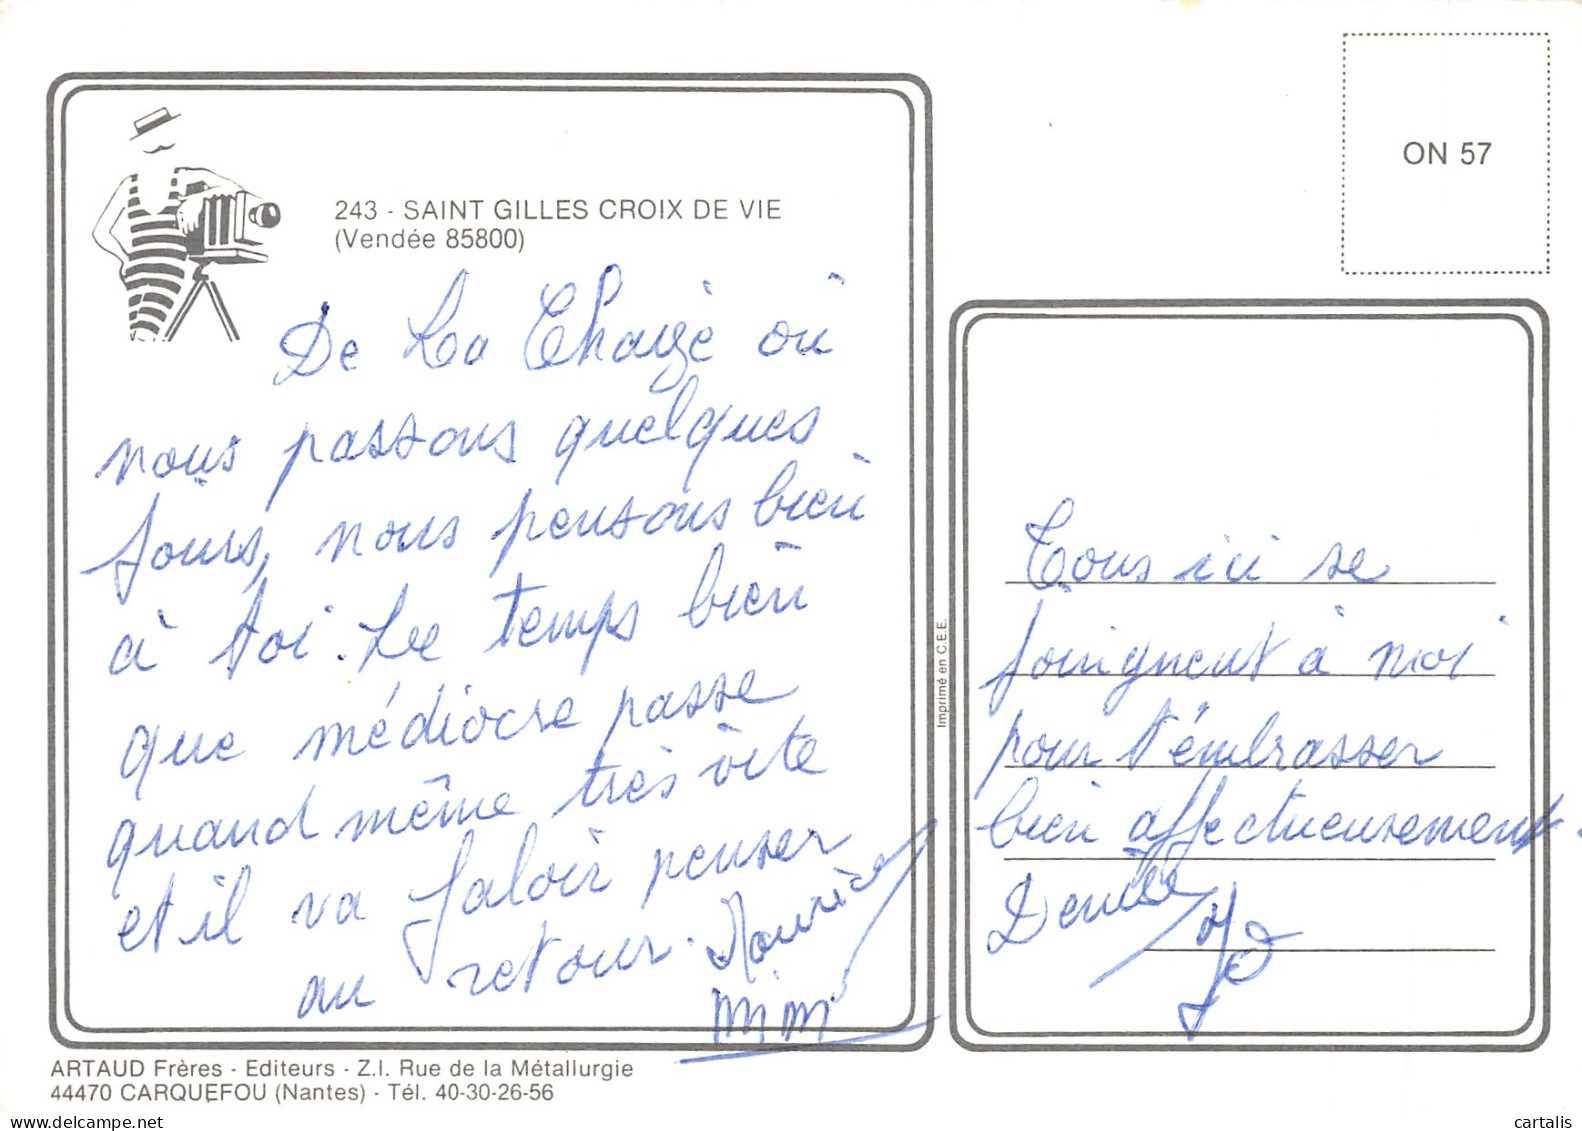 243 - SAINT GILLES CROIX DE VIE
(Vendée 85800)
De La Chaize où
nous passons quelques
jours, nous pensons bien
à toi. Le temps bien
que médiocre passe
quand même très vite
et il va faloir penser
au retour. Maurice
Mimi
ON 57
Tous ici se
joignent à moi
pour t'embrasser
bien affectueusement.
Denise
Imprimé en C.E.E.
ARTAUD Frères - Editeurs - Z.I. Rue de la Métallurgie
44470 CARQUEFOU (Nantes) - Tél. 40-30-26-56
cartalis